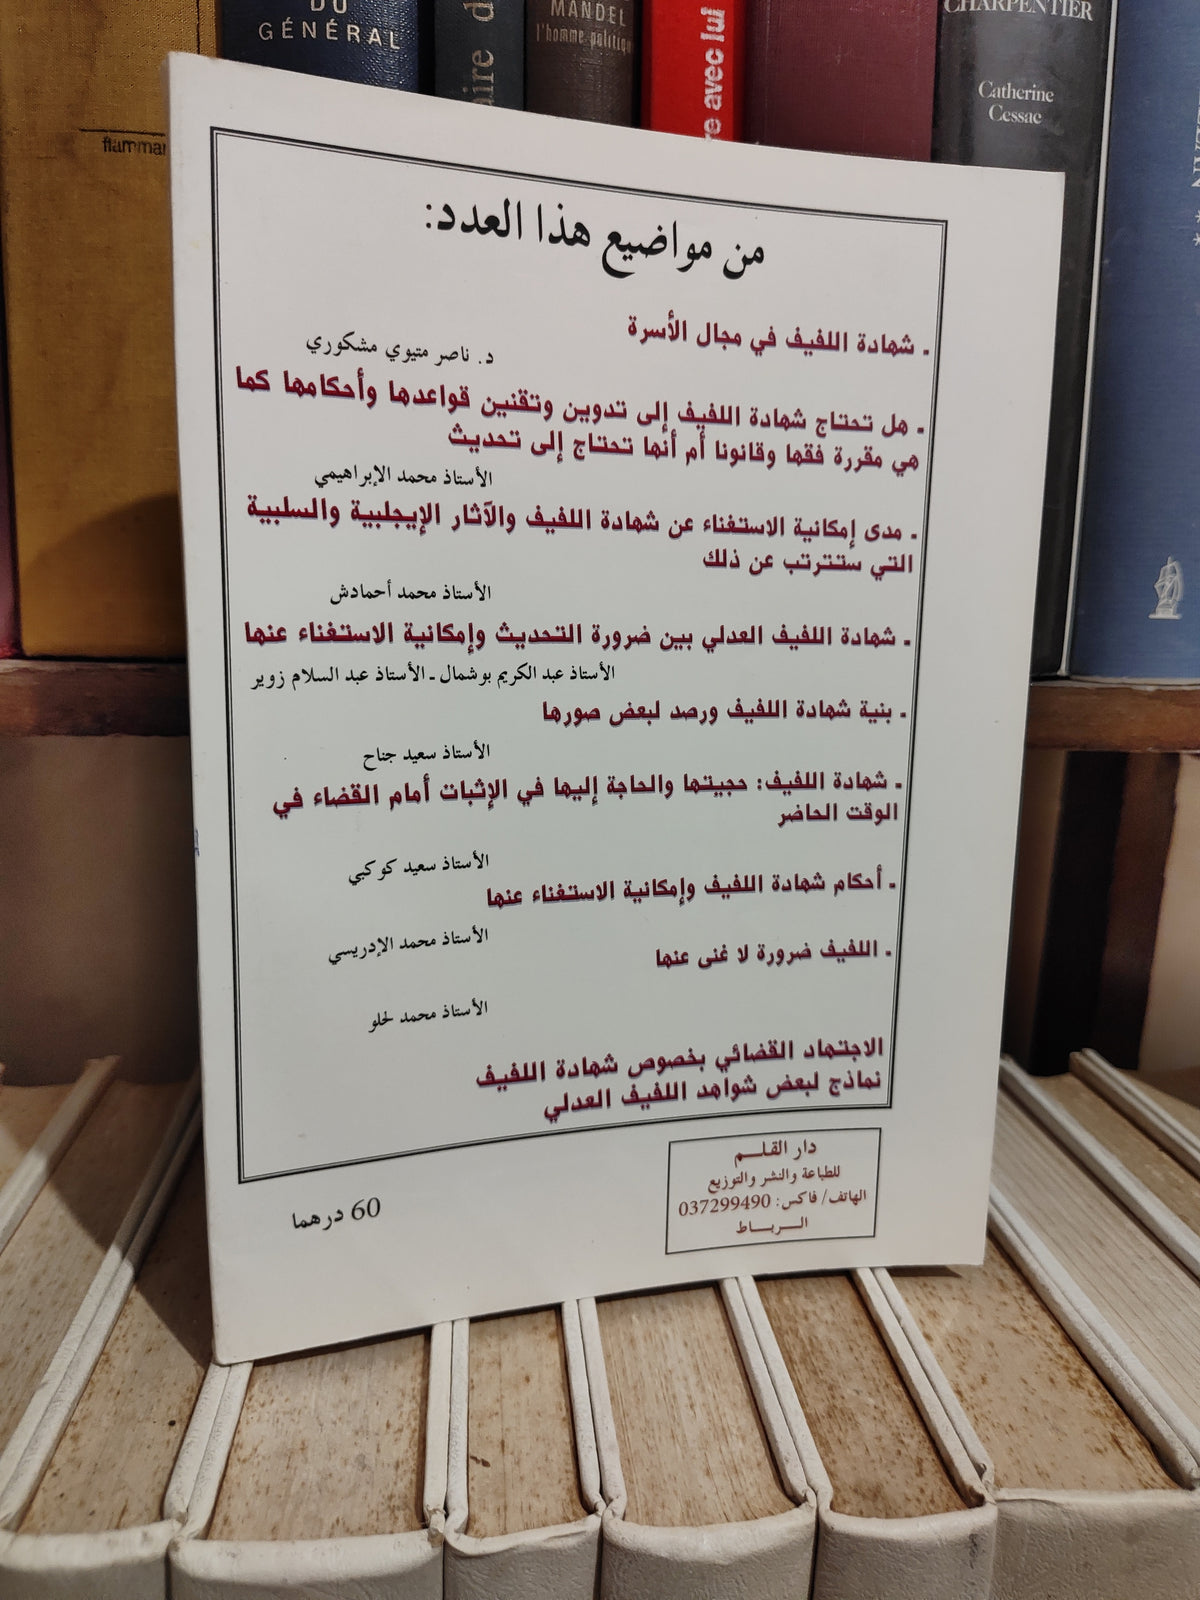 DU
GÉNÉRAL
MANDEL
l'homme politique
avec lui
CHARPENTIER
Catherine
Cessac
من مواضيع هذا العدد:
- شهادة اللفيف في مجال الأسرة
د. ناصر متيوي مشكوري
- هل تحتاج شهادة اللفيف إلى تدوين وتقنين قواعدها وأحكامها كما
هي مقررة فقها وقانونا أم أنها تحتاج إلى تحديث
الأستاذ محمد الإبراهيمي
- مدى إمكانية الاستغناء عن شهادة اللفيف والآثار الإيجلبية والسلبية
التي ستترتب عن ذلك
الأستاذ محمد أحمادش
- شهادة اللفيف العدلي بين ضرورة التحديث وإمكانية الاستغناء عنها
الأستاذ عبد الكريم بوشمال - الأستاذ عبد السلام زوير
- بنية شهادة اللفيف ورصد لبعض صورها
الأستاذ سعيد جناح
- شهادة اللفيف: حجيتها والحاجة إليها في الإثبات أمام القضاء في
الوقت الحاضر
الأستاذ سعيد كوكبي
- أحكام شهادة اللفيف وإمكانية الاستغناء عنها
الأستاذ محمد الإدريسي
- اللفيف ضرورة لا غنى عنها
الأستاذ محمد لحلو
الاجتهاد القضائي بخصوص شهادة اللفيف
نماذج لبعض شواهد اللفيف العدلي
دار القلـــم
للطباعة والنشر والتوزيع
الهاتف/ فاكس: 037299490
الـــربـــاط
60 درهما